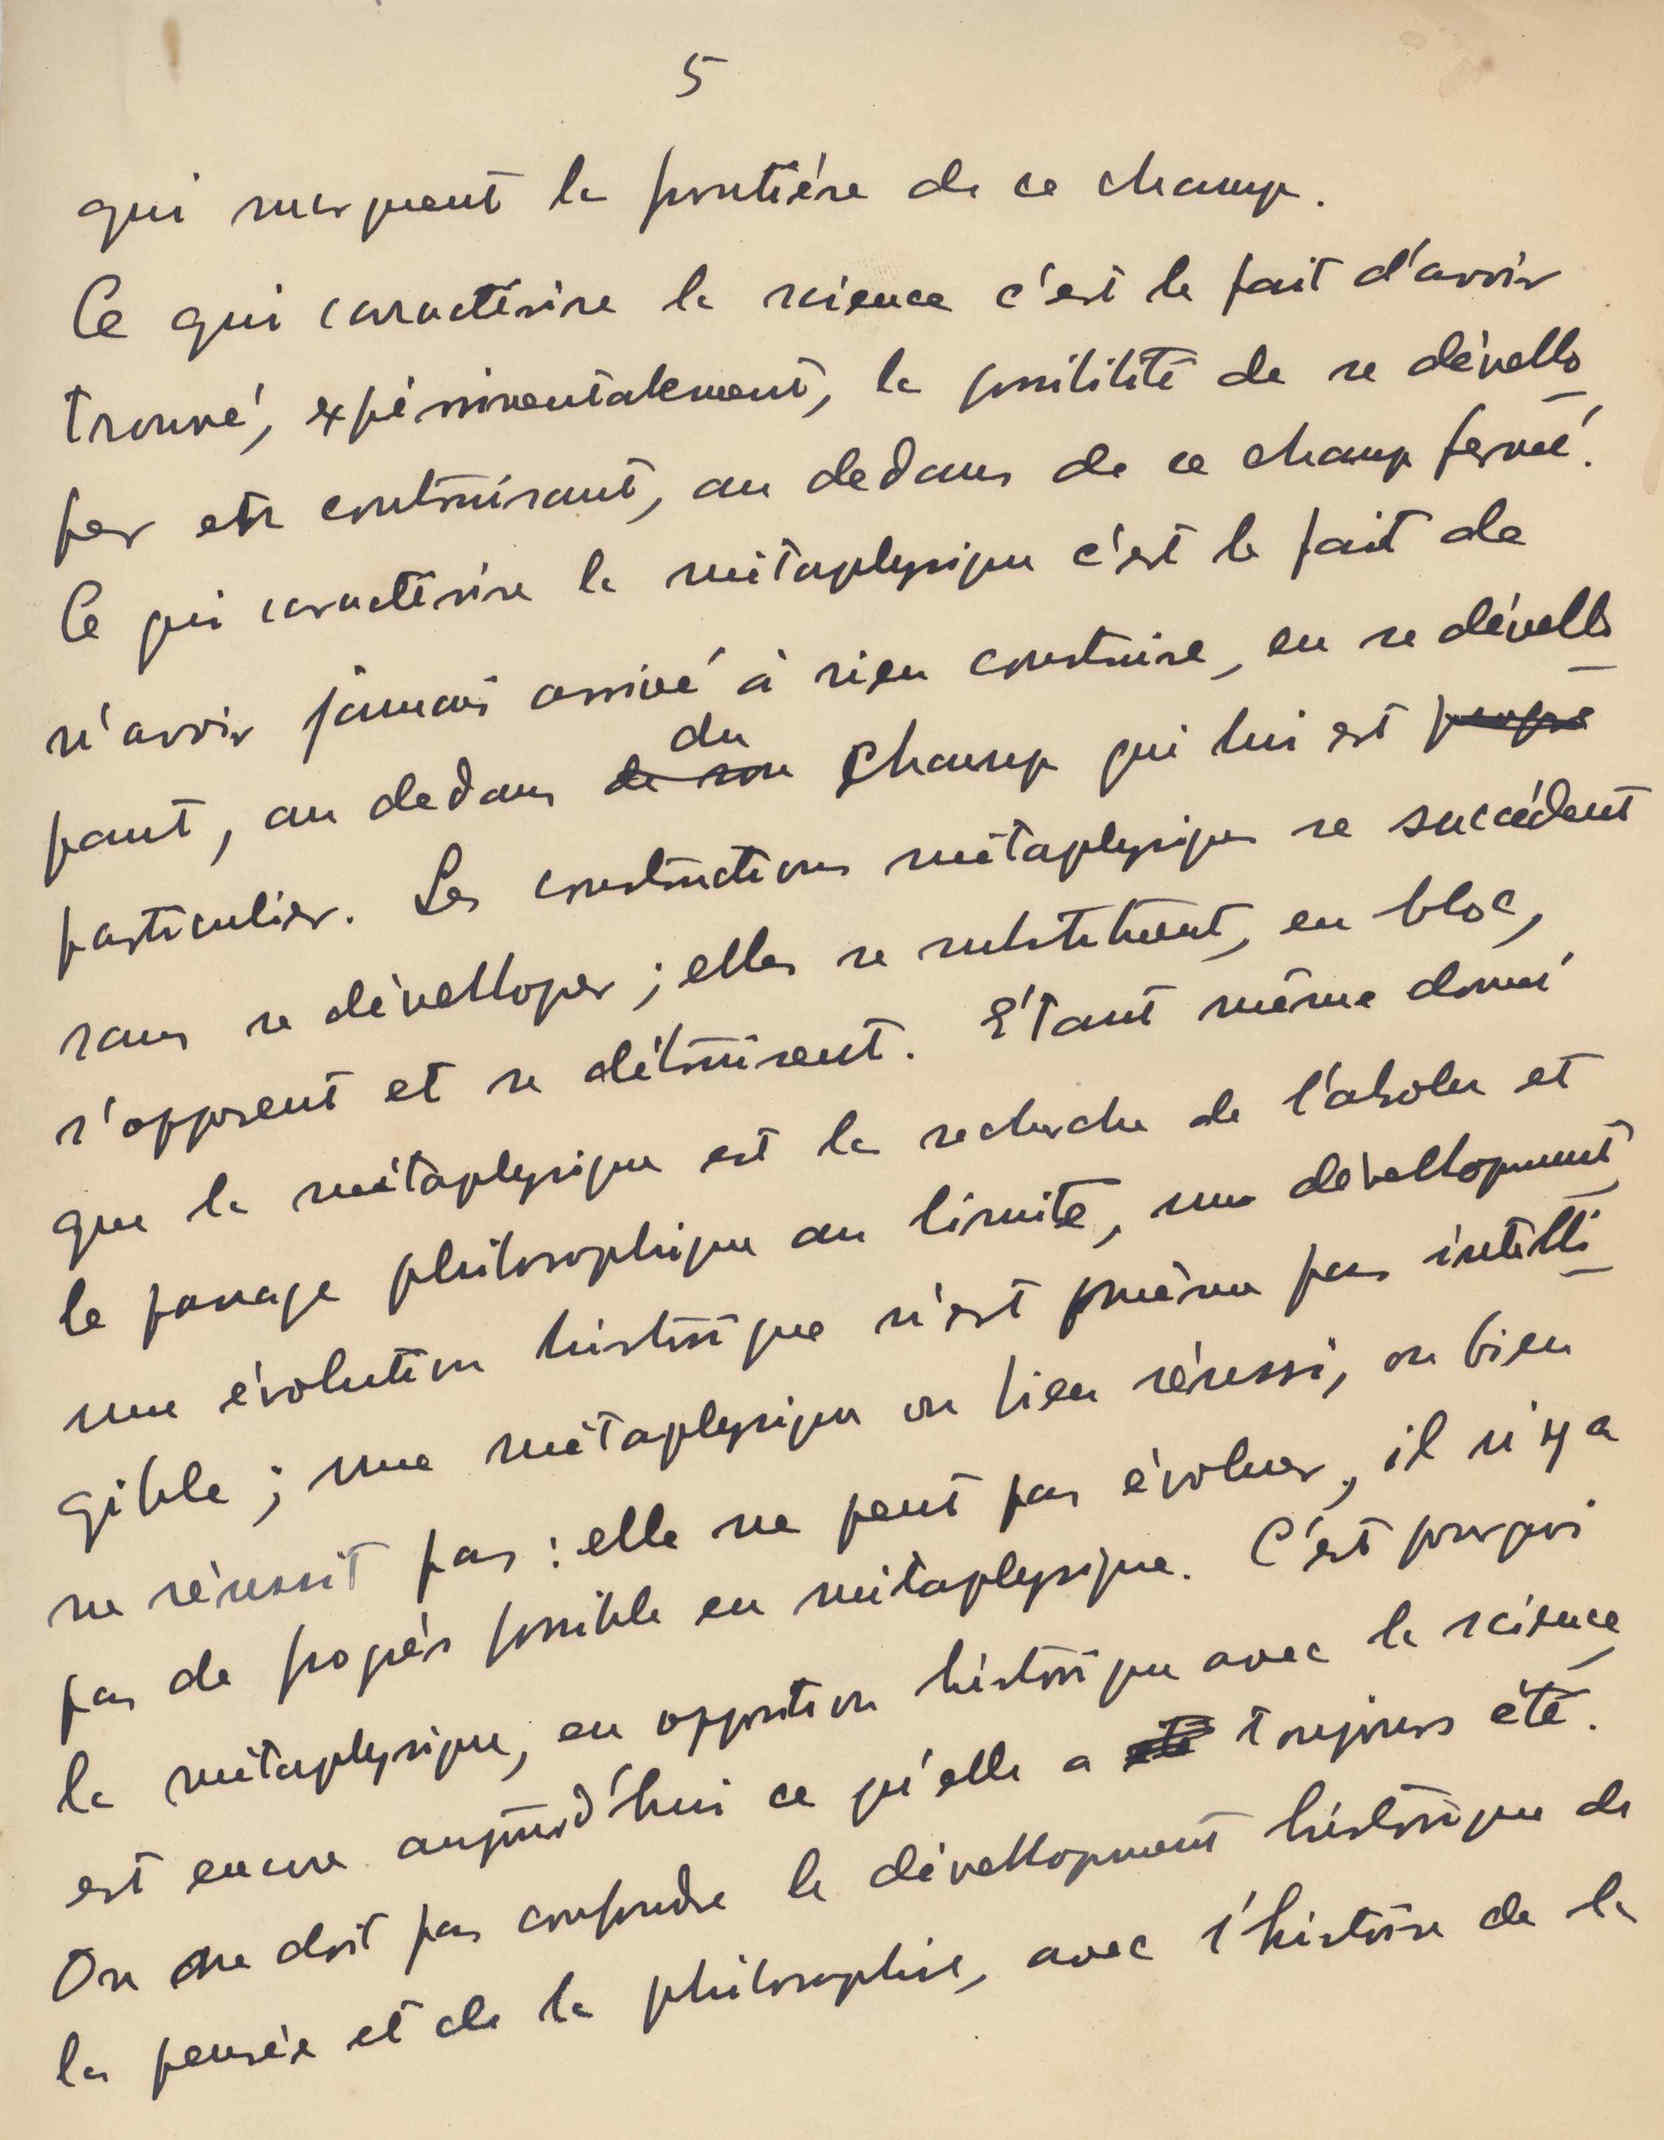 5
qui marquent la frontière de ce champ.
Ce qui caractérise la science c'est le fait d'avoir
trouvé, expérimentalement, la possibilité de se dévello
per en contruisant, au dedans de ce champ fermé.
Ce qui caractérise la métaplysique c'est le fait de
n'avoir jamais arrivé à rien construire, en se dévello
pant, au dedans de son du champ qui lui est propre
particulier. Les constructions métaplysiques se succédent
sans se dévelloper ; elles se substituent, en bloc,
s'opposent et se détruisent. Étant même donné
que la métaplysique est la recherche de l'absolu et
le passage philosophique au limite, un dévellopment,
une évolution historique n'est même pas intelli
gible ; une métaplysique ou bien réussi, ou bien
ne réussit pas : elle ne peut pas évoluer, il n'y a
pas de progrès possible en métaplysique. C'est pourquoi
la métaplysique, en opposition historique avec la science,
est encore aujourd'hui ce qu'elle a été toujours été.
On ne doit pas confondre le dévellopment historique de
la pensée et de la philosophie, avec l'histoire de la